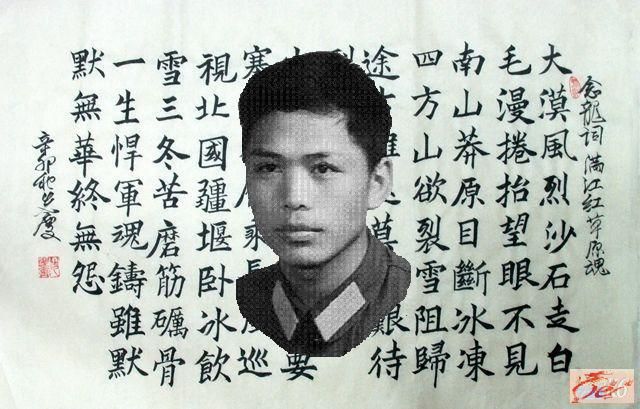 念龍詞 满江红 草原魂
大漠風烈沙石走白
毛漫捲抬望眼不見
南山莽原目斷冰凍
四方山欲裂雪阻歸
途難艱待
要
巡
視北國疆堰卧冰飲
雪三冬苦磨筋礪骨
一生悍軍魂鑄雖默
默無華終無怨
辛卯秋